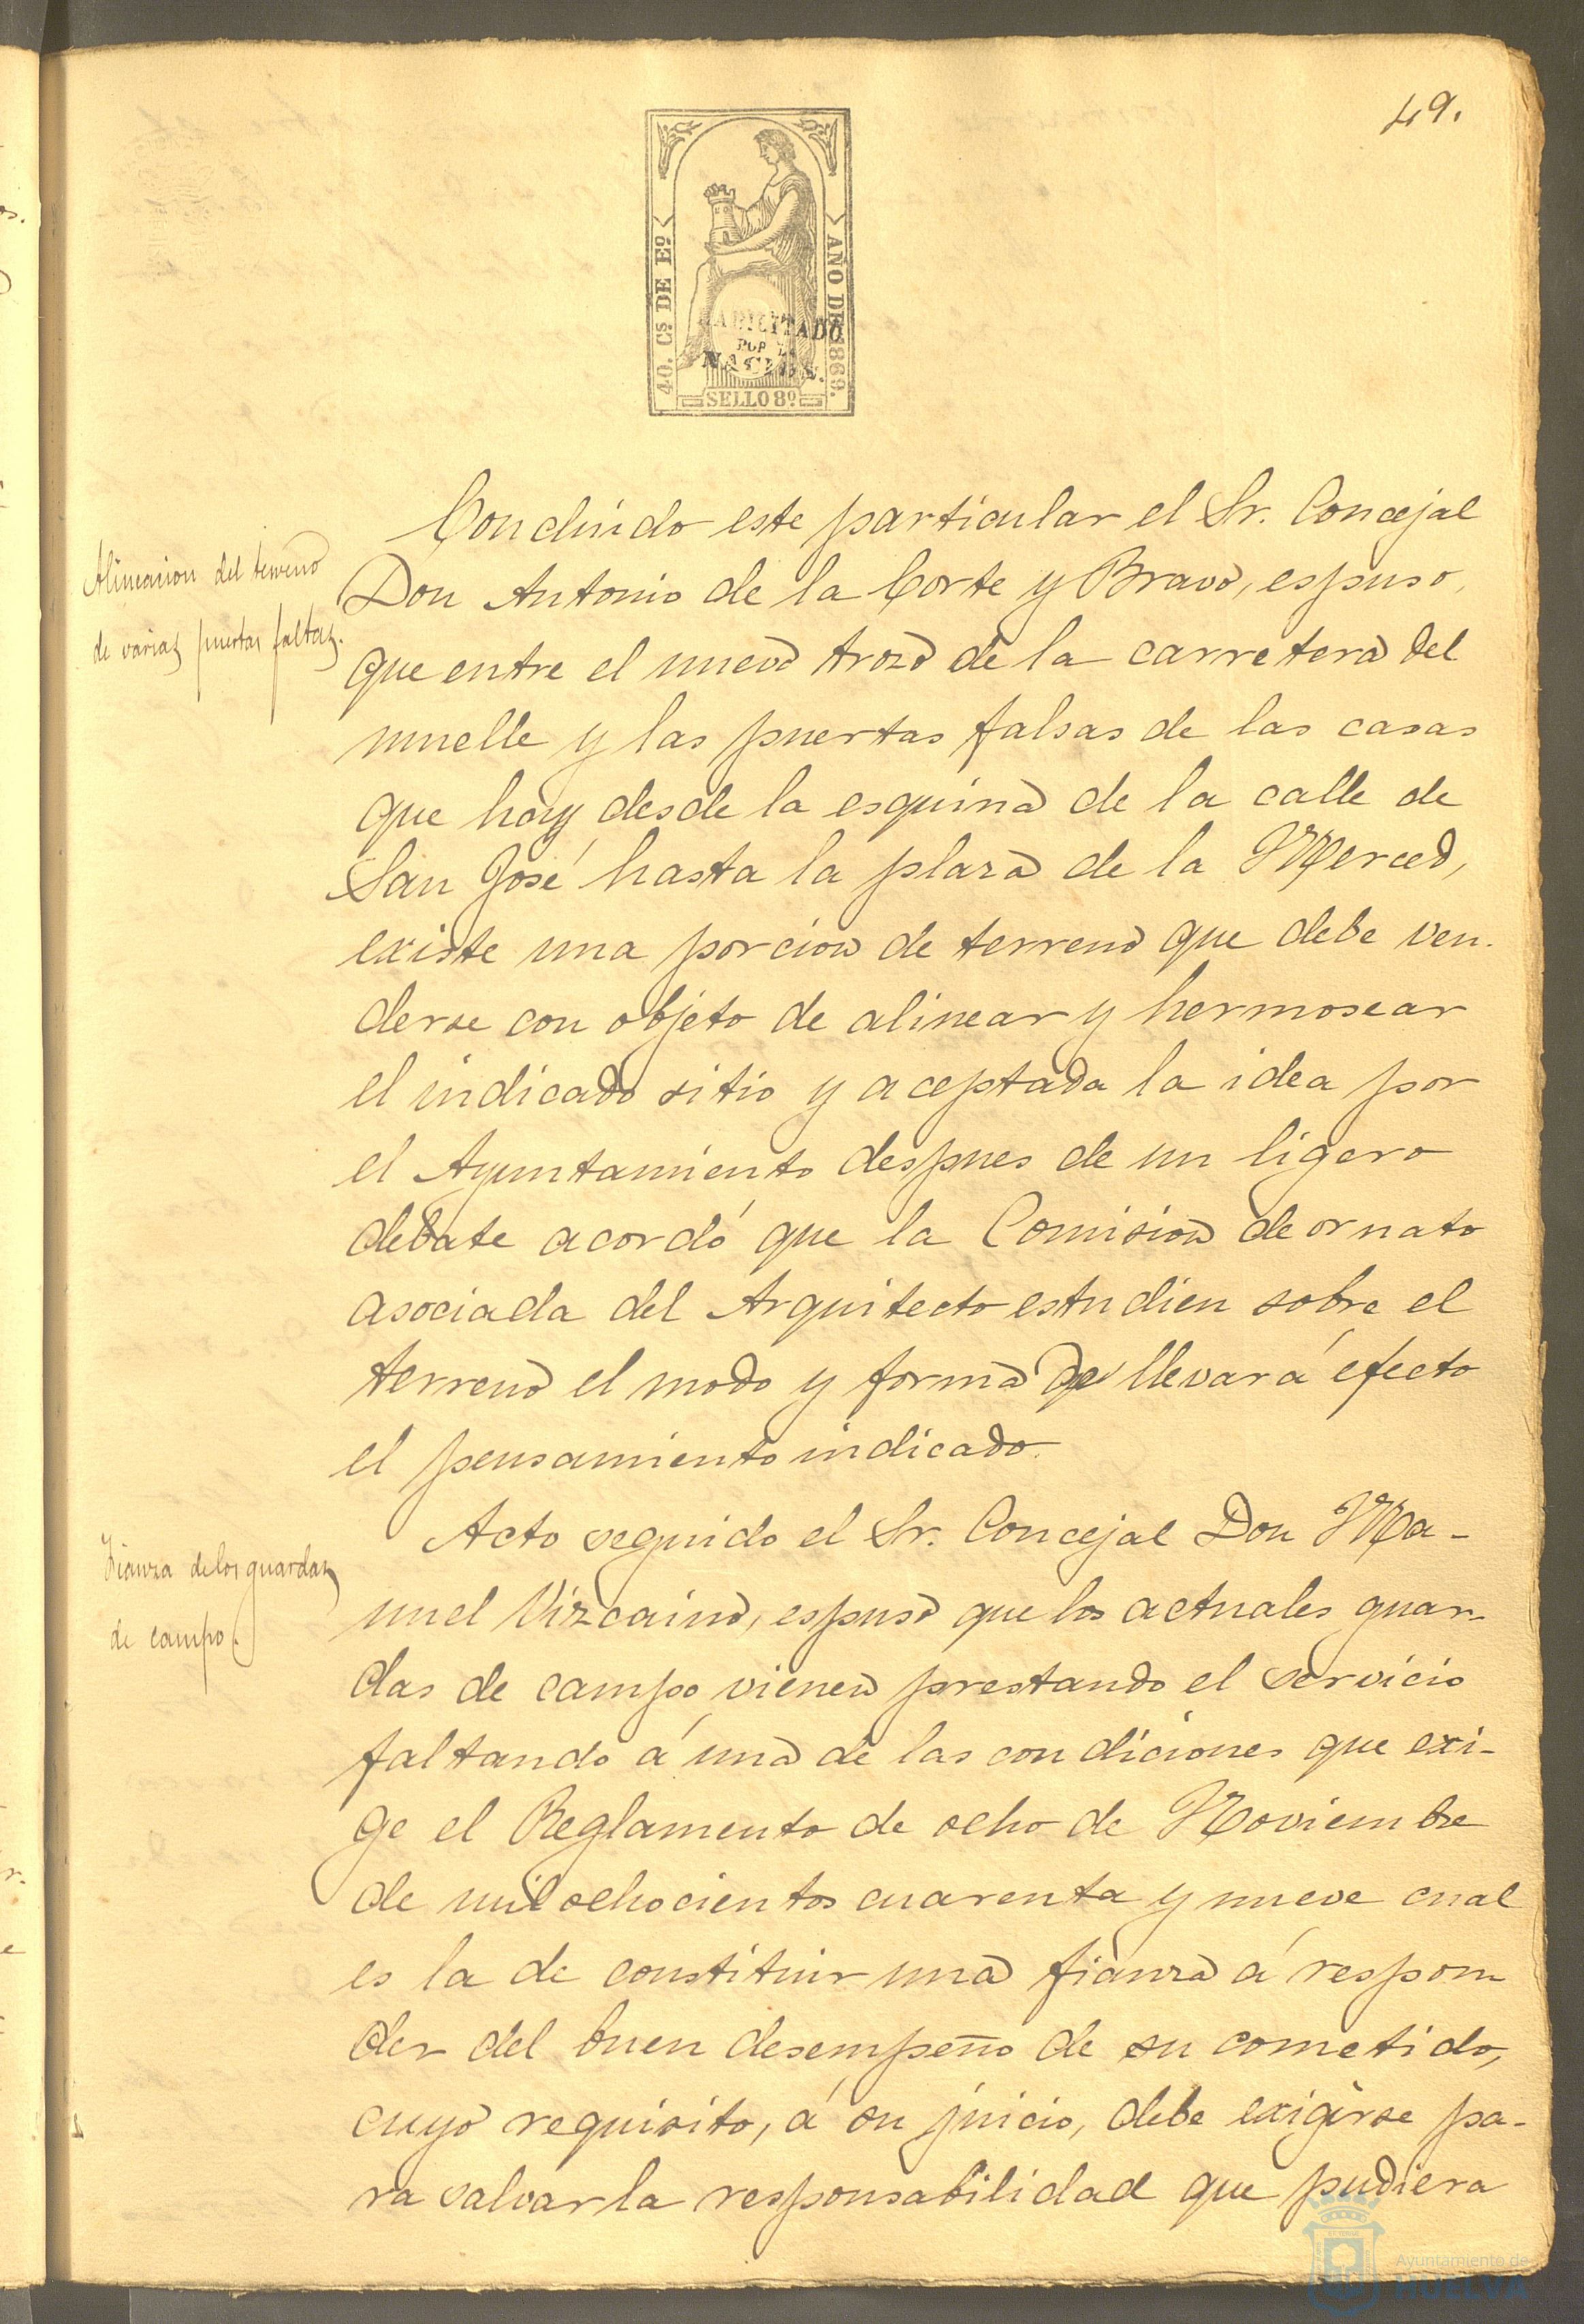 49.
40. Cs. DE Eo.
AÑO DE 1869.
HABILITADO
POR LA
NACION.
SELLO 8º
Concluido este particular el Sr. Concejal
Alineacion del terreno
de varias puertas faltas.
Don Antonio de la Corte y Bravo, espuso,
que entre el nuevo trozo de la carretera del
muelle y las puertas falsas de las casas
que hay desde la esquina de la calle de
San José hasta la plaza de la Merced,
existe una porcion de terreno que debe ven-
derse con objeto de alinear y hermosear
el indicado sitio y aceptada la idea por
el Ayuntamiento despues de un ligero
debate acordó que la Comision de ornato
asociada del Arquitecto estudien sobre el
terreno el modo y forma de llevar á efecto
el pensamiento indicado.
Acto seguido el Sr. Concejal Don Ma-
Fianza de los guardas
de campo.
nuel Vizcaino, espuso que los actuales guar-
das de campo vienen prestando el servicio
faltando á una de las condiciones que exi-
ge el Reglamento de ocho de Noviembre
de mil ochocientos cuarenta y nueve cual
es la de constituir una fianza á respon-
der del buen desempeño de su cometido,
cuyo requisito, á su juicio, debe exigirse pa-
ra salvar la responsabilidad que pudiera
Ayuntamiento de
HUELVA